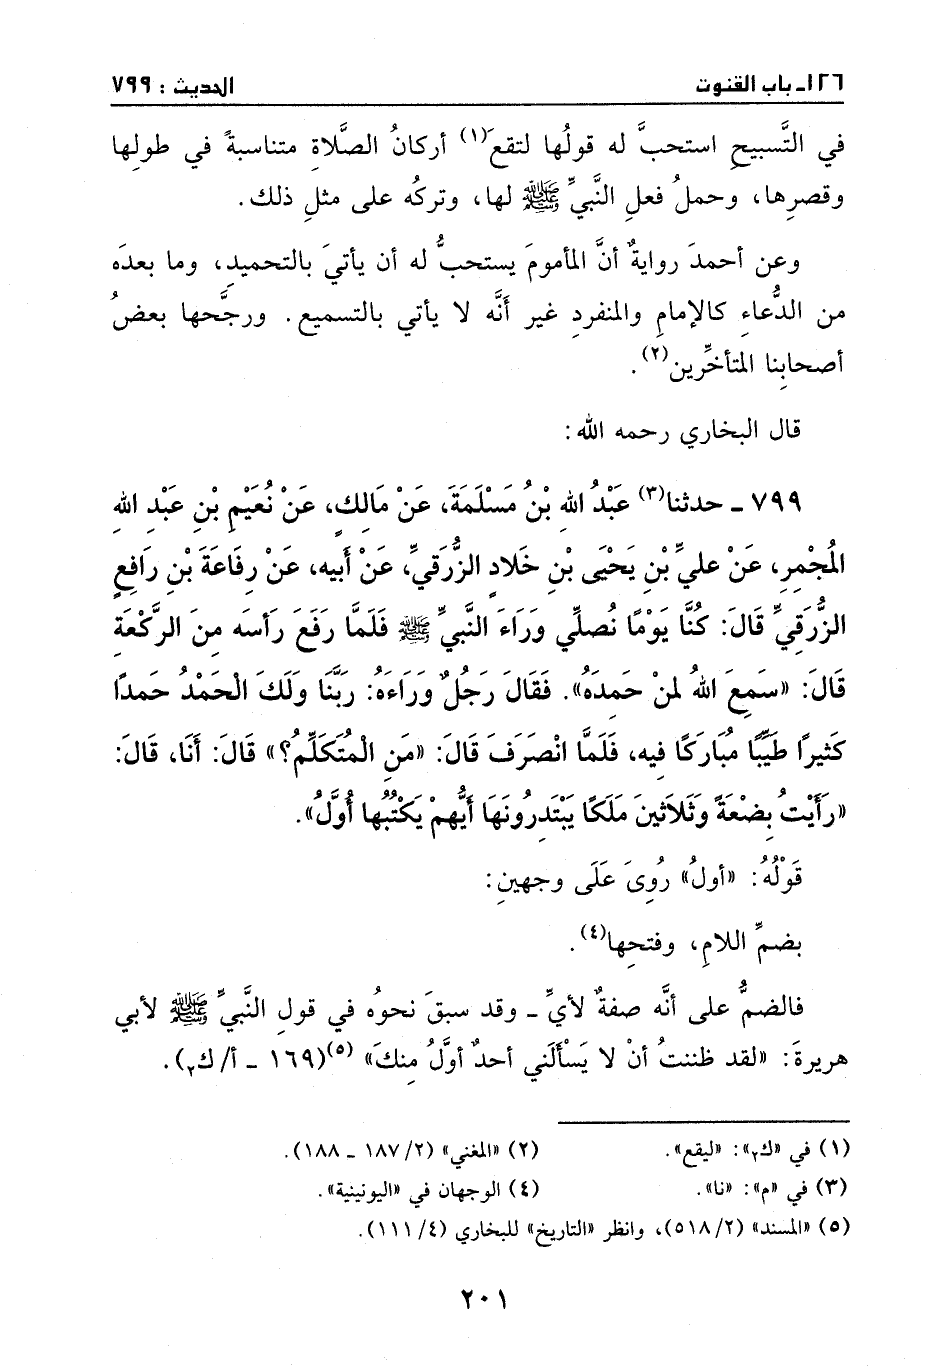 ١٢٦ـ باب القنوت
الحديث : ٧٩٩
في التَّسبيحِ استحبَّ له قولُها لتقعَ(١) أركانُ الصَّلاةِ متناسبةً في طولِها
وقصرِها، وحملُ فعلِ النَّبيِّ ﷺ لها، وتركُه على مثلِ ذلك.
وعن أحمدَ روايةٌ أنَّ المأمومَ يستحبُّ له أن يأتيَ بالتحميدِ، وما بعدَه
من الدُّعاءِ كالإمامِ والمنفردِ غير أنَّه لا يأتي بالتسميع. ورجَّحها بعضُ
أصحابِنا المتأخِّرين(٢).
قال البخاري رحمه الله:
٧٩٩ ـ حدثنا(٣) عَبْدُ اللهِ بْنُ مَسْلَمَةَ، عَنْ مَالِكٍ، عَنْ نُعَيْمِ بْنِ عَبْدِ اللهِ
المُجْمِرِ، عَنْ عليِّ بْنِ يَحْيَى بْنِ خَلادٍ الزُّرَقيِّ، عَنْ أَبيه، عَنْ رِفاعَةَ بْنِ رَافِعٍ
الزُّرَقيِّ قَالَ: كُنَّا يَوْمًا نُصلِّي وَرَاءَ النَّبيِّ ﷺ فَلَمَّا رَفَعَ رَأسَه مِنَ الرَّكْعَةِ
قَالَ: «سَمِعَ اللهُ لمنْ حَمدَهُ». فَقَالَ رَجُلٌ وَرَاءَهُ: رَبَّنَا وَلَكَ الْحَمْدُ حَمدًا
كَثيرًا طَيِّبًا مُبَارَكًا فيه، فَلَمَّا انْصَرَفَ قَالَ: «مَنِ الْمُتَكَلِّمُ؟» قَالَ: أَنَا، قَالَ:
«رَأَيْتُ بِضْعَةً وَثَلَاثينَ مَلَكًا يَبْتَدِرُونَهَا أَيُّهمْ يَكْتُبُها أَوَّلُ».
قَوْلُهُ: «أولُ» رُوِىَ عَلَى وجهينِ:
بضمِّ اللامِ، وفتحِها(٤).
فالضمُّ على أنَّه صفةٌ لأيِّ ـ وقد سبقَ نحوُه في قولِ النَّبيِّ ﷺ لأبي
هريرةَ: «لقد ظننتُ أنْ لا يَسْألَني أحدٌ أولَّ منكَ» (٥)(١٦٩ ـ أ/ ك٢).
(١) في «ك٢»: «ليقع».
(٢) «المغني» (٢/ ١٨٧ ـ ١٨٨).
(٣) في «م»: «نا».
(٤) الوجهان في «اليونينية».
(٥) «المسند» (٢/ ٥١٨)، وانظر «التاريخ» للبخاري (٤/ ١١١).
٢٠١